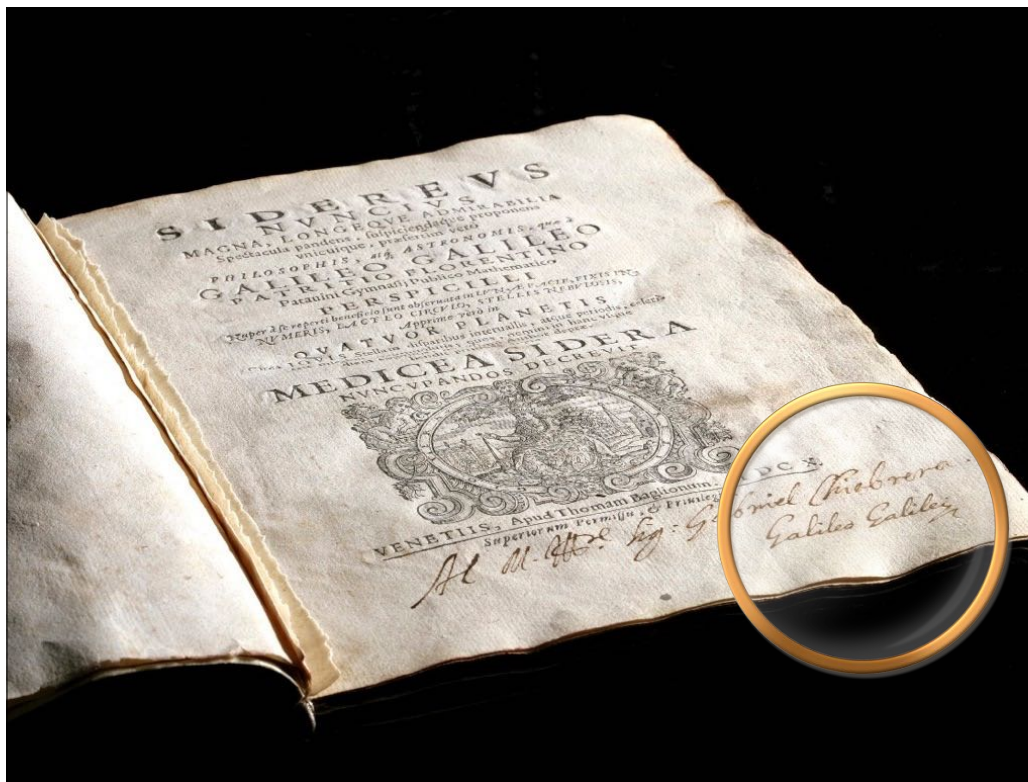 SIDEREVS
NVNCIVS
MAGNA, LONGEQVE ADMIRABILIA
Spectacula pandens, suſpiciendaque proponens
vnicuique, præſertim verò
PHILOSOPHIS, atq; ASTRONOMIS, quæ à
GALILEO GALILEO
PATRITIO FLORENTINO
Patauini Gymnaſij Publico Mathematico
PERSPICILLI
Nuper à ſe reperti beneficio ſunt obſeruata in LVNÆ FACIE, FIXIS IN-
NVMERIS, LACTEO CIRCVLO, STELLIS NEBVLOSIS,
Apprime verò in
QVATVOR PLANETIS
Circa IOVIS Stellam diſparibus interuallis, atque periodis, celeri-
in hanc vſque
MEDICEA SIDERA
NVNCVPANDOS DECREVIT
VENETIIS, Apud Thomam Baglionum. DC X.
Superiorum Permiſſu, & Priuilegio
Al M. Sig: Gabriel Chiebrera
Galileo Galilei